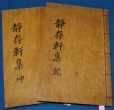 靜存軒集 乾
靜存軒集 坤